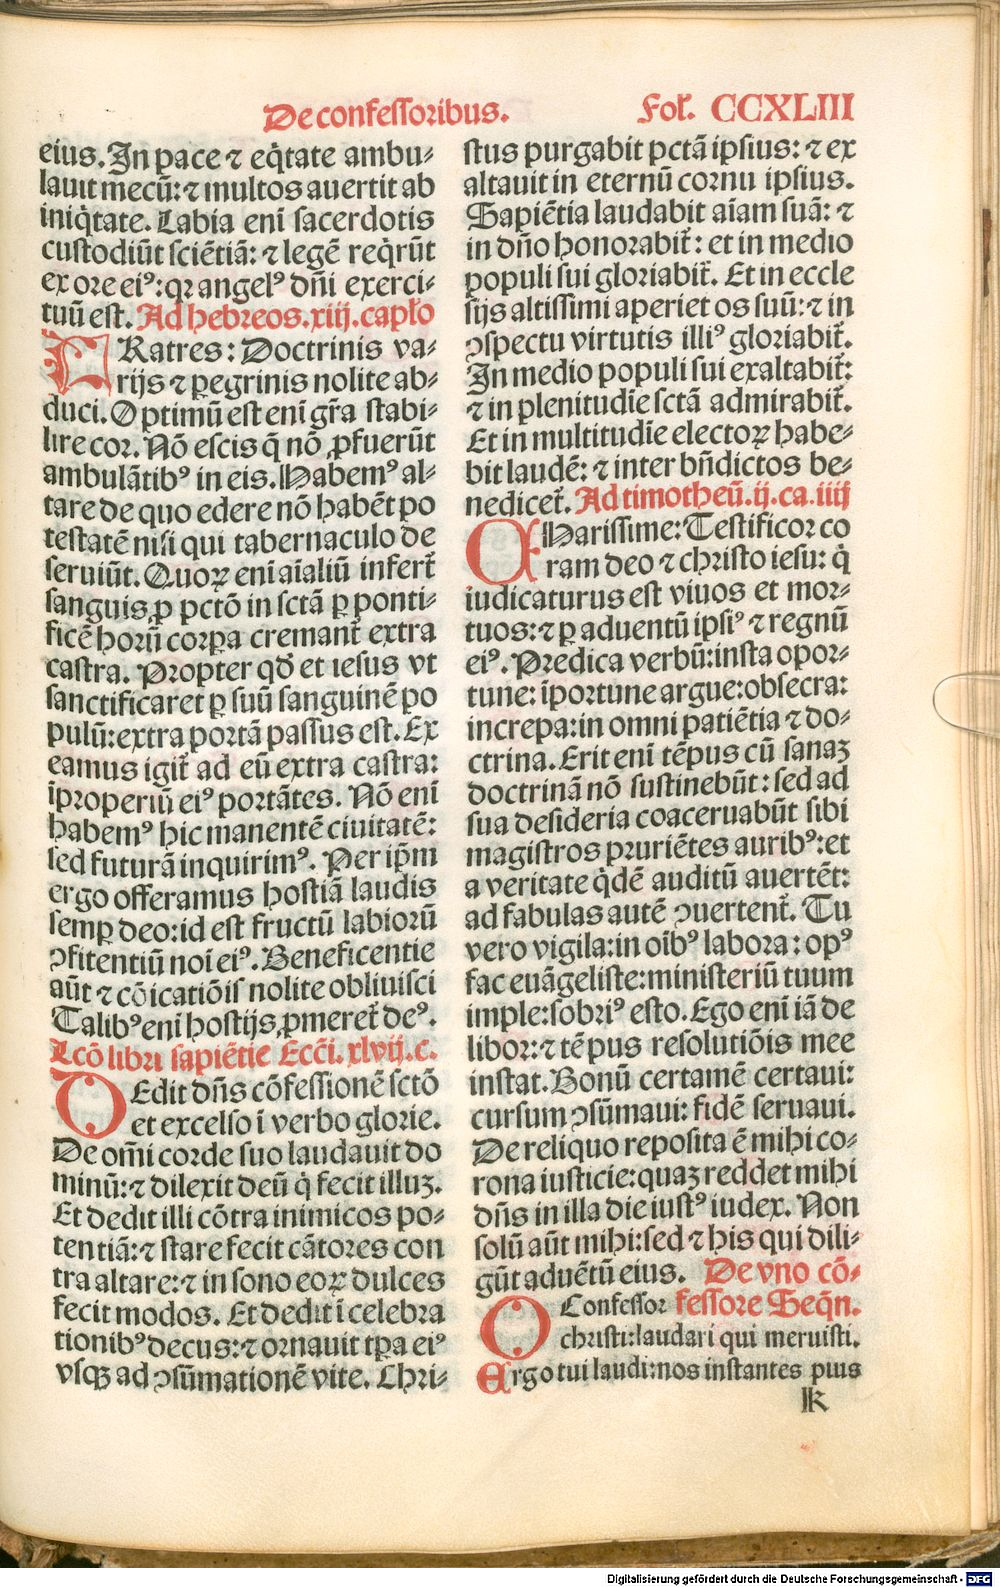 De confessoribus. Fol. CCXLIII
eius. In pace ⁊ eq̇tate ambu⸗
lauit mecū: ⁊ multos auertit ab
iniq̇tate. Labia enī sacerdotis
custodiūt sciētiā: ⁊ legē reqͥrūt
ex ore eiꝰ: qꝛ angelꝰ dñi exerci⸗
tuū est. Ad hebreos. xiij. capło
FRatres: Doctrinis va⸗
rijs ⁊ ꝑegrinis nolite ab⸗
duci. Optimū est enī gr̄a stabi⸗
lire cor. Nō escis q̄ nō ꝓfuerūt
ambulātibꝰ in eis. Habemꝰ al⸗
tare de quo edere nō habēt po
testatē nisi qui tabernaculo de
seruiūt. Quoꝝ enī aīaliū infert᷑
sanguis ꝓ pctō in sctā ꝑ ponti⸗
ficē horū corꝑa cremant᷑ extra
castra. Propter qđ et iesus vt
sanctificaret ꝑ suū sanguinē po
pulū: extra portā passus est. Ex
eamus igit᷑ ad eū extra castra:
īproperiū eiꝰ portātes. Nō enī
habemꝰ hic manentē ciuitatē:
sed futurā inquirimꝰ. Per ip̄m
ergo offeramus hostiā laudis
semꝑ deo: id est fructū labiorū
ꝯfitentiū noī eiꝰ. Beneficentie
aūt ⁊ cōicatiōis nolite obliuisci
Talibꝰ enī hostijs ꝓmeret᷑ deꝰ.
Lcō libri sapiētie Ecci. xlvij. c.
DEdit dñs cōfessionē sctō
et excelso ī verbo glorie.
De om̄i corde suo laudauit do
minū: ⁊ dilexit deū q̇ fecit illuꝫ.
Et dedit illi cōtra inimicos po⸗
tentiā: ⁊ stare fecit cātores con
tra altare: ⁊ in sono eoꝝ dulces
fecit modos. Et dedit ī celebra
tionibꝰ decus: ⁊ ornauit tꝑa eiꝰ
vsqꝫ ad ꝯsūmationē vite. Chri⸗
stus purgabit pctā ipsius: ⁊ ex
altauit in eternū cornu ipsius.
Sapiētia laudabit aīam suā: ⁊
in dño honorabit᷑: et in medio
populi sui gloriabit᷑. Et in eccle
sijs altissimi aperiet os suū: ⁊ in
ꝯspectu virtutis illiꝰ gloriabit᷑.
In medio populi sui exaltabit᷑:
⁊ in plenitudīe sctā admirabit᷑.
Et in multitudīe electoꝝ habe⸗
bit laudē: ⁊ inter bn̄dictos be⸗
nedicet᷑. Ad timotheū. ij. ca. iiij
CHarissime: Testificor co
ram deo ⁊ christo iesu: q̇
iudicaturus est viuos et mor⸗
tuos: ⁊ ꝑ aduentū ipsiꝰ ⁊ regnū
eiꝰ. Predica verbū: insta opor⸗
tune: īportune argue: obsecra:
increpa: in omni patiētia ⁊ do⸗
ctrina. Erit enī tēpus cū sanaꝫ
doctrinā nō sustinebūt: sed ad
sua desideria coaceruabūt sibi
magistros pruriētes auribꝰ: et
a veritate q̇dē auditū auertēt:
ad fabulas autē ꝯuertent᷑. Tu
vero vigila: in oībꝰ labora: opꝰ
fac euāgeliste: ministeriū tuum
imple: sobriꝰ esto. Ego enī iā de
libor: ⁊ tēpus resolutiōis mee
instat. Bonū certamē certaui:
cursum ꝯsūmaui: fidē seruaui.
De reliquo reposita ē mihi co⸗
rona iusticie: quaꝫ reddet mihi
dñs in illa die iustꝰ iudex. Non
solū aūt mihi: sed ⁊ his qui dili⸗
gūt aduētū eius. De vno cō⸗
O Confessor fessore Seqn̄.
christi: laudari qui meruisti.
Ergo tui laudi: nos instantes pius
k
Digitalisierung gefördert durch die Deutsche Forschungsgemeinschaft - DFG